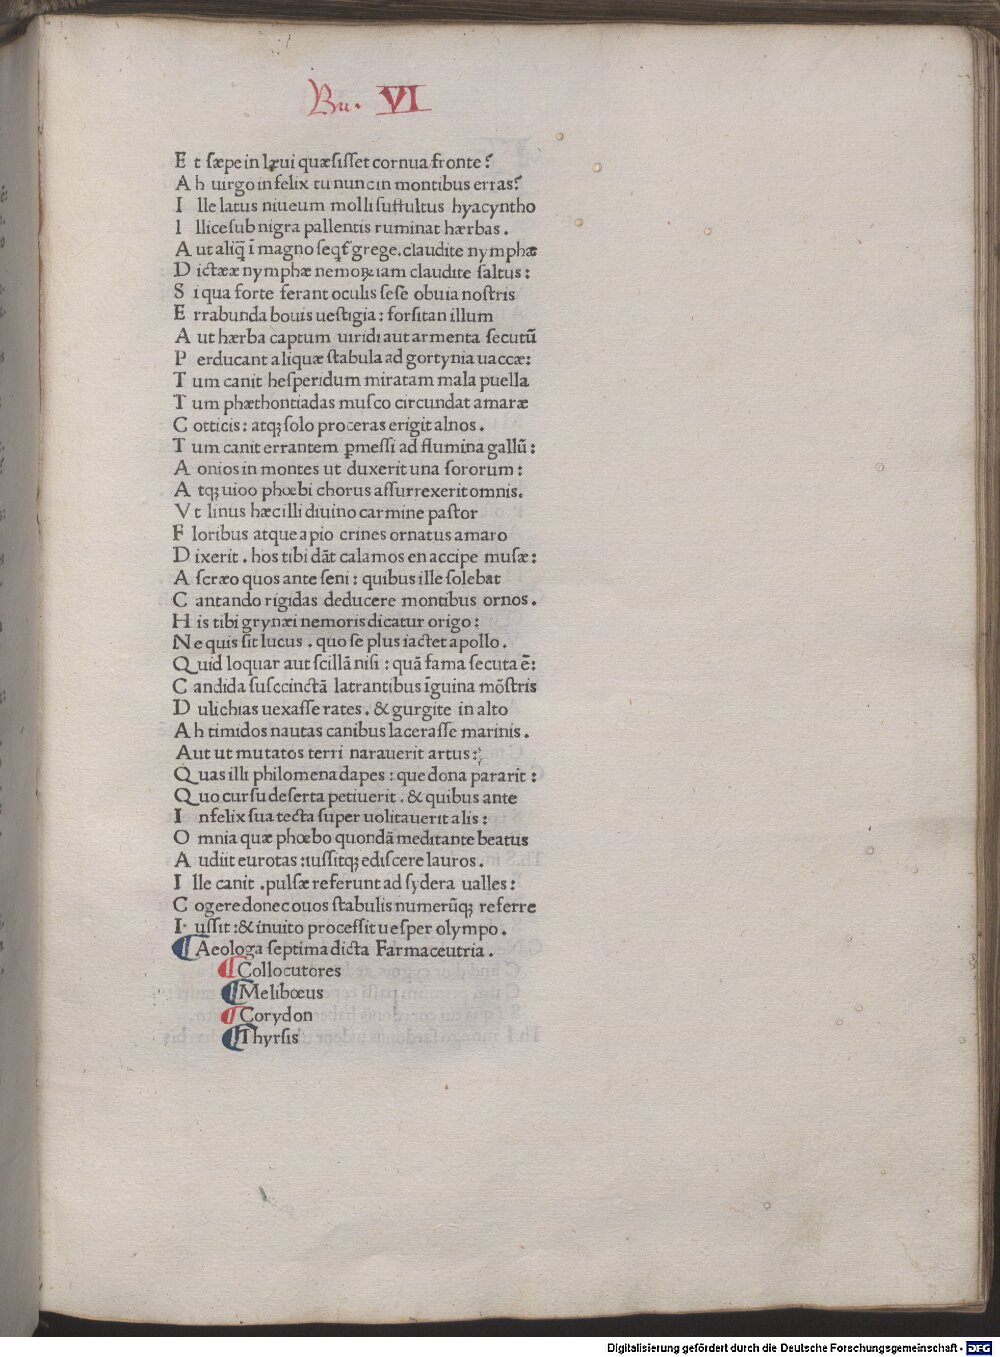 Bu. VI
E t sæpe in læui quæsisset cornua fronte?
A h uirgo infelix tu nunc in montibus erras?
I lle latus niueum molli suffultus hyacyntho
I llice sub nigra pallentis ruminat hærbas.
A ut aliq̃ ĩ magno seqt̃ grege. claudite nymphæ
D ictææ nymphæ nemoꝝ iam claudite saltus:
S i qua forte ferant oculis sese obuia nostris
E rrabunda bouis uestigia: forsitan illum
A ut hærba captum uiridi aut armenta secutũ
P erducant aliquæ stabula ad gortynia uaccæ:
T um canit hesperidum miratam mala puella
T um phæthontiadas musco circundat amaræ
C otticis: atqꝫ solo proceras erigit alnos.
T um canit errantem ꝑmessi ad flumina gallũ:
A onios in montes ut duxerit una sororum:
A tqꝫ uioo phœbi chorus assurrexerit omnis.
V t linus hæc illi diuino carmine pastor
F loribus atque apio crines ornatus amaro
D ixerit. hos tibi dãt calamos en accipe musæ:
A scræo quos ante seni: quibus ille solebat
C antando rigidas deducere montibus ornos.
H is tibi grynæi nemoris dicatur origo:
N e quis sit lucus. quo se plus iactet apollo.
Q uid loquar aut scillã nisi: quã fama secuta ẽ:
C andida susccinctã latrantibus ĩguina mõstris
D ulichias uexasse rates. & gurgite in alto
A h timidos nautas canibus lacerasse marinis.
Aut ut mutatos terri narauerit artus:
Q uas illi philomena dapes: que dona pararit:
Q uo cursu deserta petiuerit. & quibus ante
I nfelix sua tecta super uolitauerit alis:
O mnia quæ phœbo quondã meditante beatus
A udiit eurotas: iussitqꝫ ediscere lauros.
I lle canit. pulsæ referunt ad sydera ualles:
C ogere donec ouos stabulis numerũqꝫ referre
I ussit: & inuito processit uesper olympo.
¶ Aeologa septima dicta Farmaceutria.
¶ Collocutores
¶ Melibœus
¶ Corydon
¶ Thyrsis
Digitalisierung gefördert durch die Deutsche Forschungsgemeinschaft - DFG